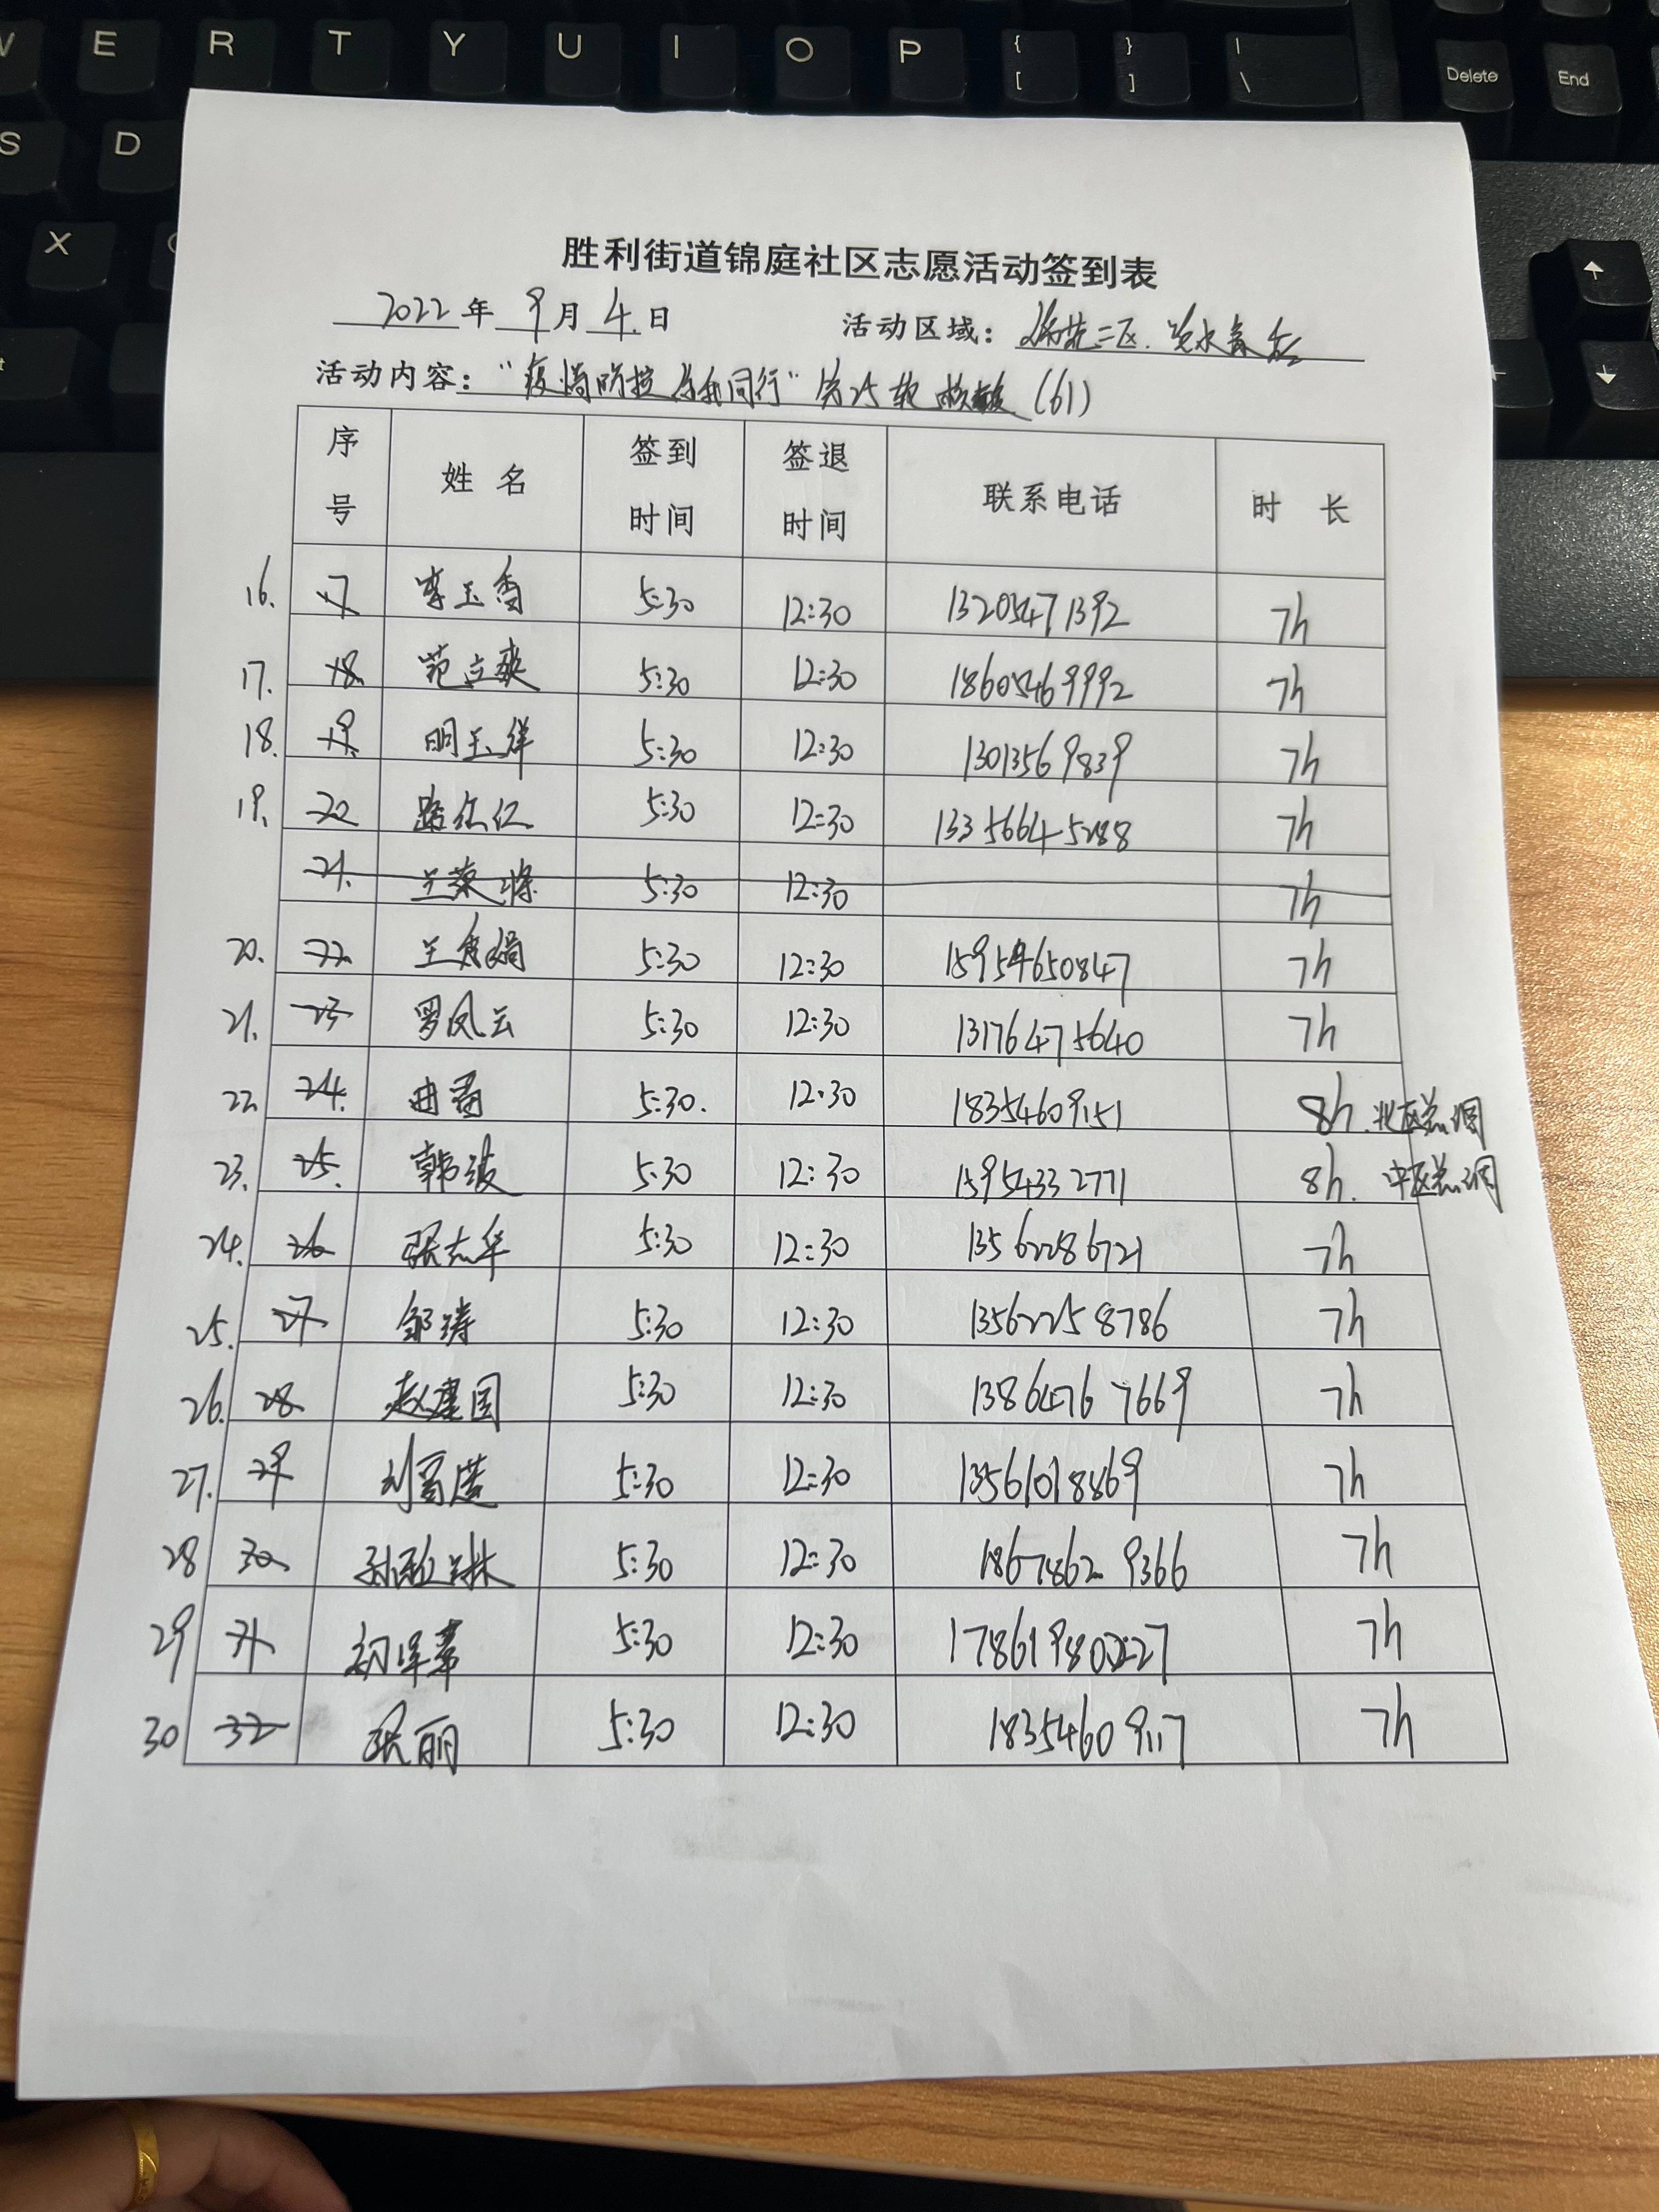 W E R T Y U I O P { [ } ] | \ Delete End
S D
X
胜利街道锦庭社区志愿活动签到表
2022年 9月 4日 活动区域： 二区.
活动内容： "疫情防控 与我同行" 第25轮 核酸 (61)
序号 姓名 签到时间 签退时间 联系电话 时长
16. 17 李玉香 5:30 12:30 13205471392 7h
17. 18. 范立爽 5:30 12:30 18605469992 7h
18. 19. 明玉祥 5:30 12:30 13013569839 7h
19. 20 路 5:30 12:30 13356645288 7h
21. 王荣 5:30 12:30 7h
20. 22. 王 娟 5:30 12:30 15954650847 7h
21. 23 罗凤云 5:30 12:30 13176475640 7h
22. 24. 曲 5:30. 12:30 18354609151 8h. 北区总调
23. 25. 韩波 5:30 12:30 15954332771 8h. 中区总调
24. 26 张志华 5:30 12:30 13562286721 7h
25. 27 邹涛 5:30 12:30 13562258786 7h
26. 28 赵建国 5:30 12:30 13864767669 7h
27. 29 刘 莲 5:30 12:30 13561018869 7h
28 30. 孙 琳 5:30 12:30 18678629366 7h
29 31. 5:30 12:30 17861980227 7h
30 32 张丽 5:30 12:30 18354609117 7h